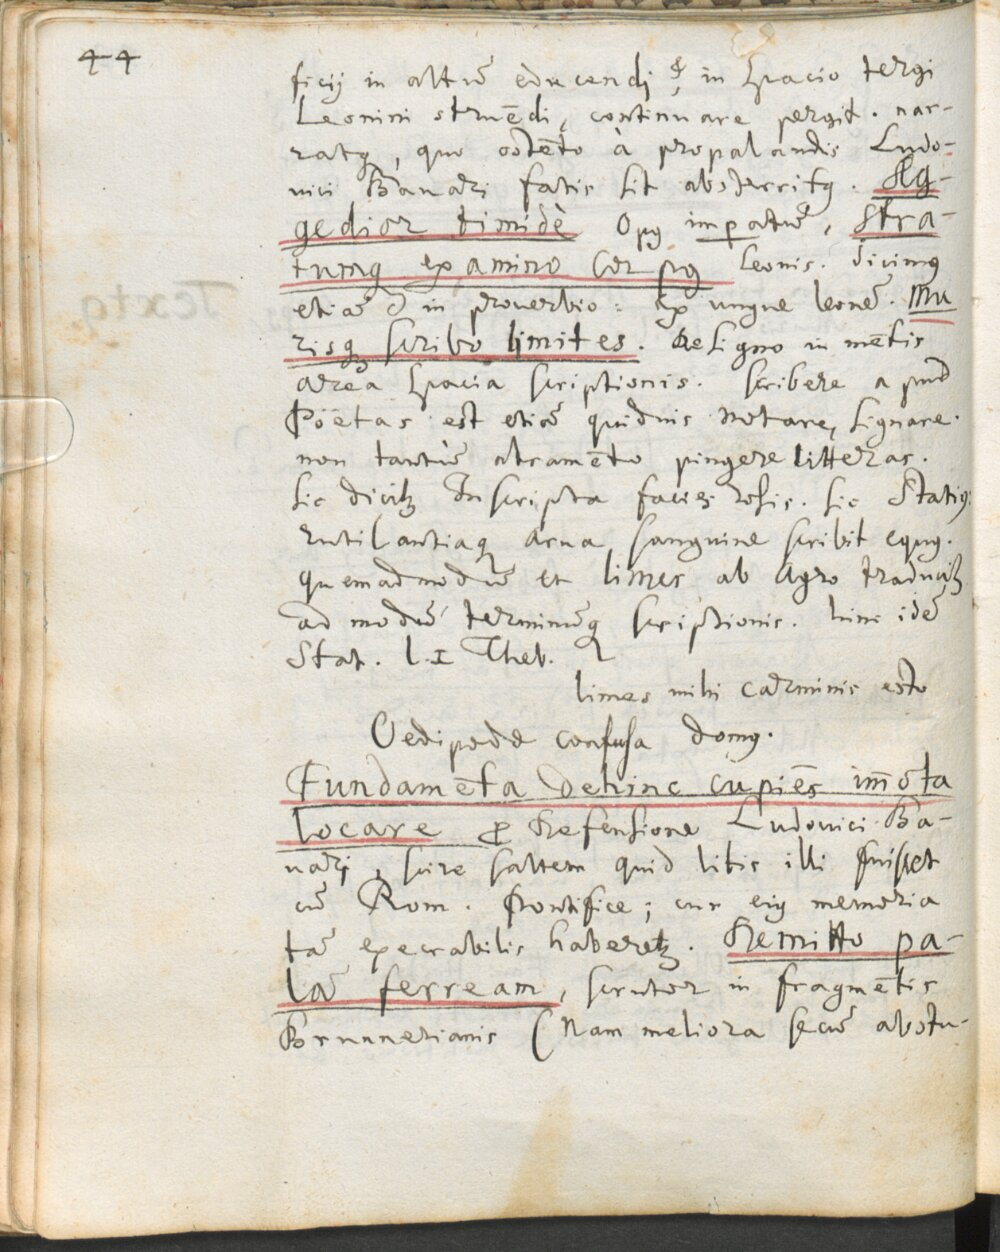 44
ficij in altū educendj & in spacio tergi
Leonini struēdi, continuare pergit. nar-
ratq, quo ostēto à propalandis Ludo-
vici Bauari fatis sit absterritq. Ag-
gedior timidè Opq imparatū, stra-
tumq examino corpq Leonis. dicimq
etiā in proverbio: Ex ungue leonē. mu
risq scribo limites. Designo in mētis
area spacia scriptionis. scribere apud
Poëtas est etiā quiduis notare, signare.
non tantū atramēto pingere litteras.
sic dicitʒ Inscripta facies rosis. sic Statiq:
rutilantiaq arua sanguine scribit equq.
quemadmodū et limes ab Agro traducitʒ
ad modū terminūq scriptionis. hinc idē
Stat. l. I Theb.
limes mihi carminis esto
Oedipodæ confusa domq.
Fundamēta dehinc cupiēs im̄ota
locare p Defensione Ludovici Ba-
uarj, scire saltem quid litis illi fuisset
cū Rom. Pontifice; cur eiq memoria
tā execrabilis haberetʒ. Demitto pa-
lā ferream, scrutor in fragmētis
Brunnerianis (Nam meliora secū abstu-
Textq.